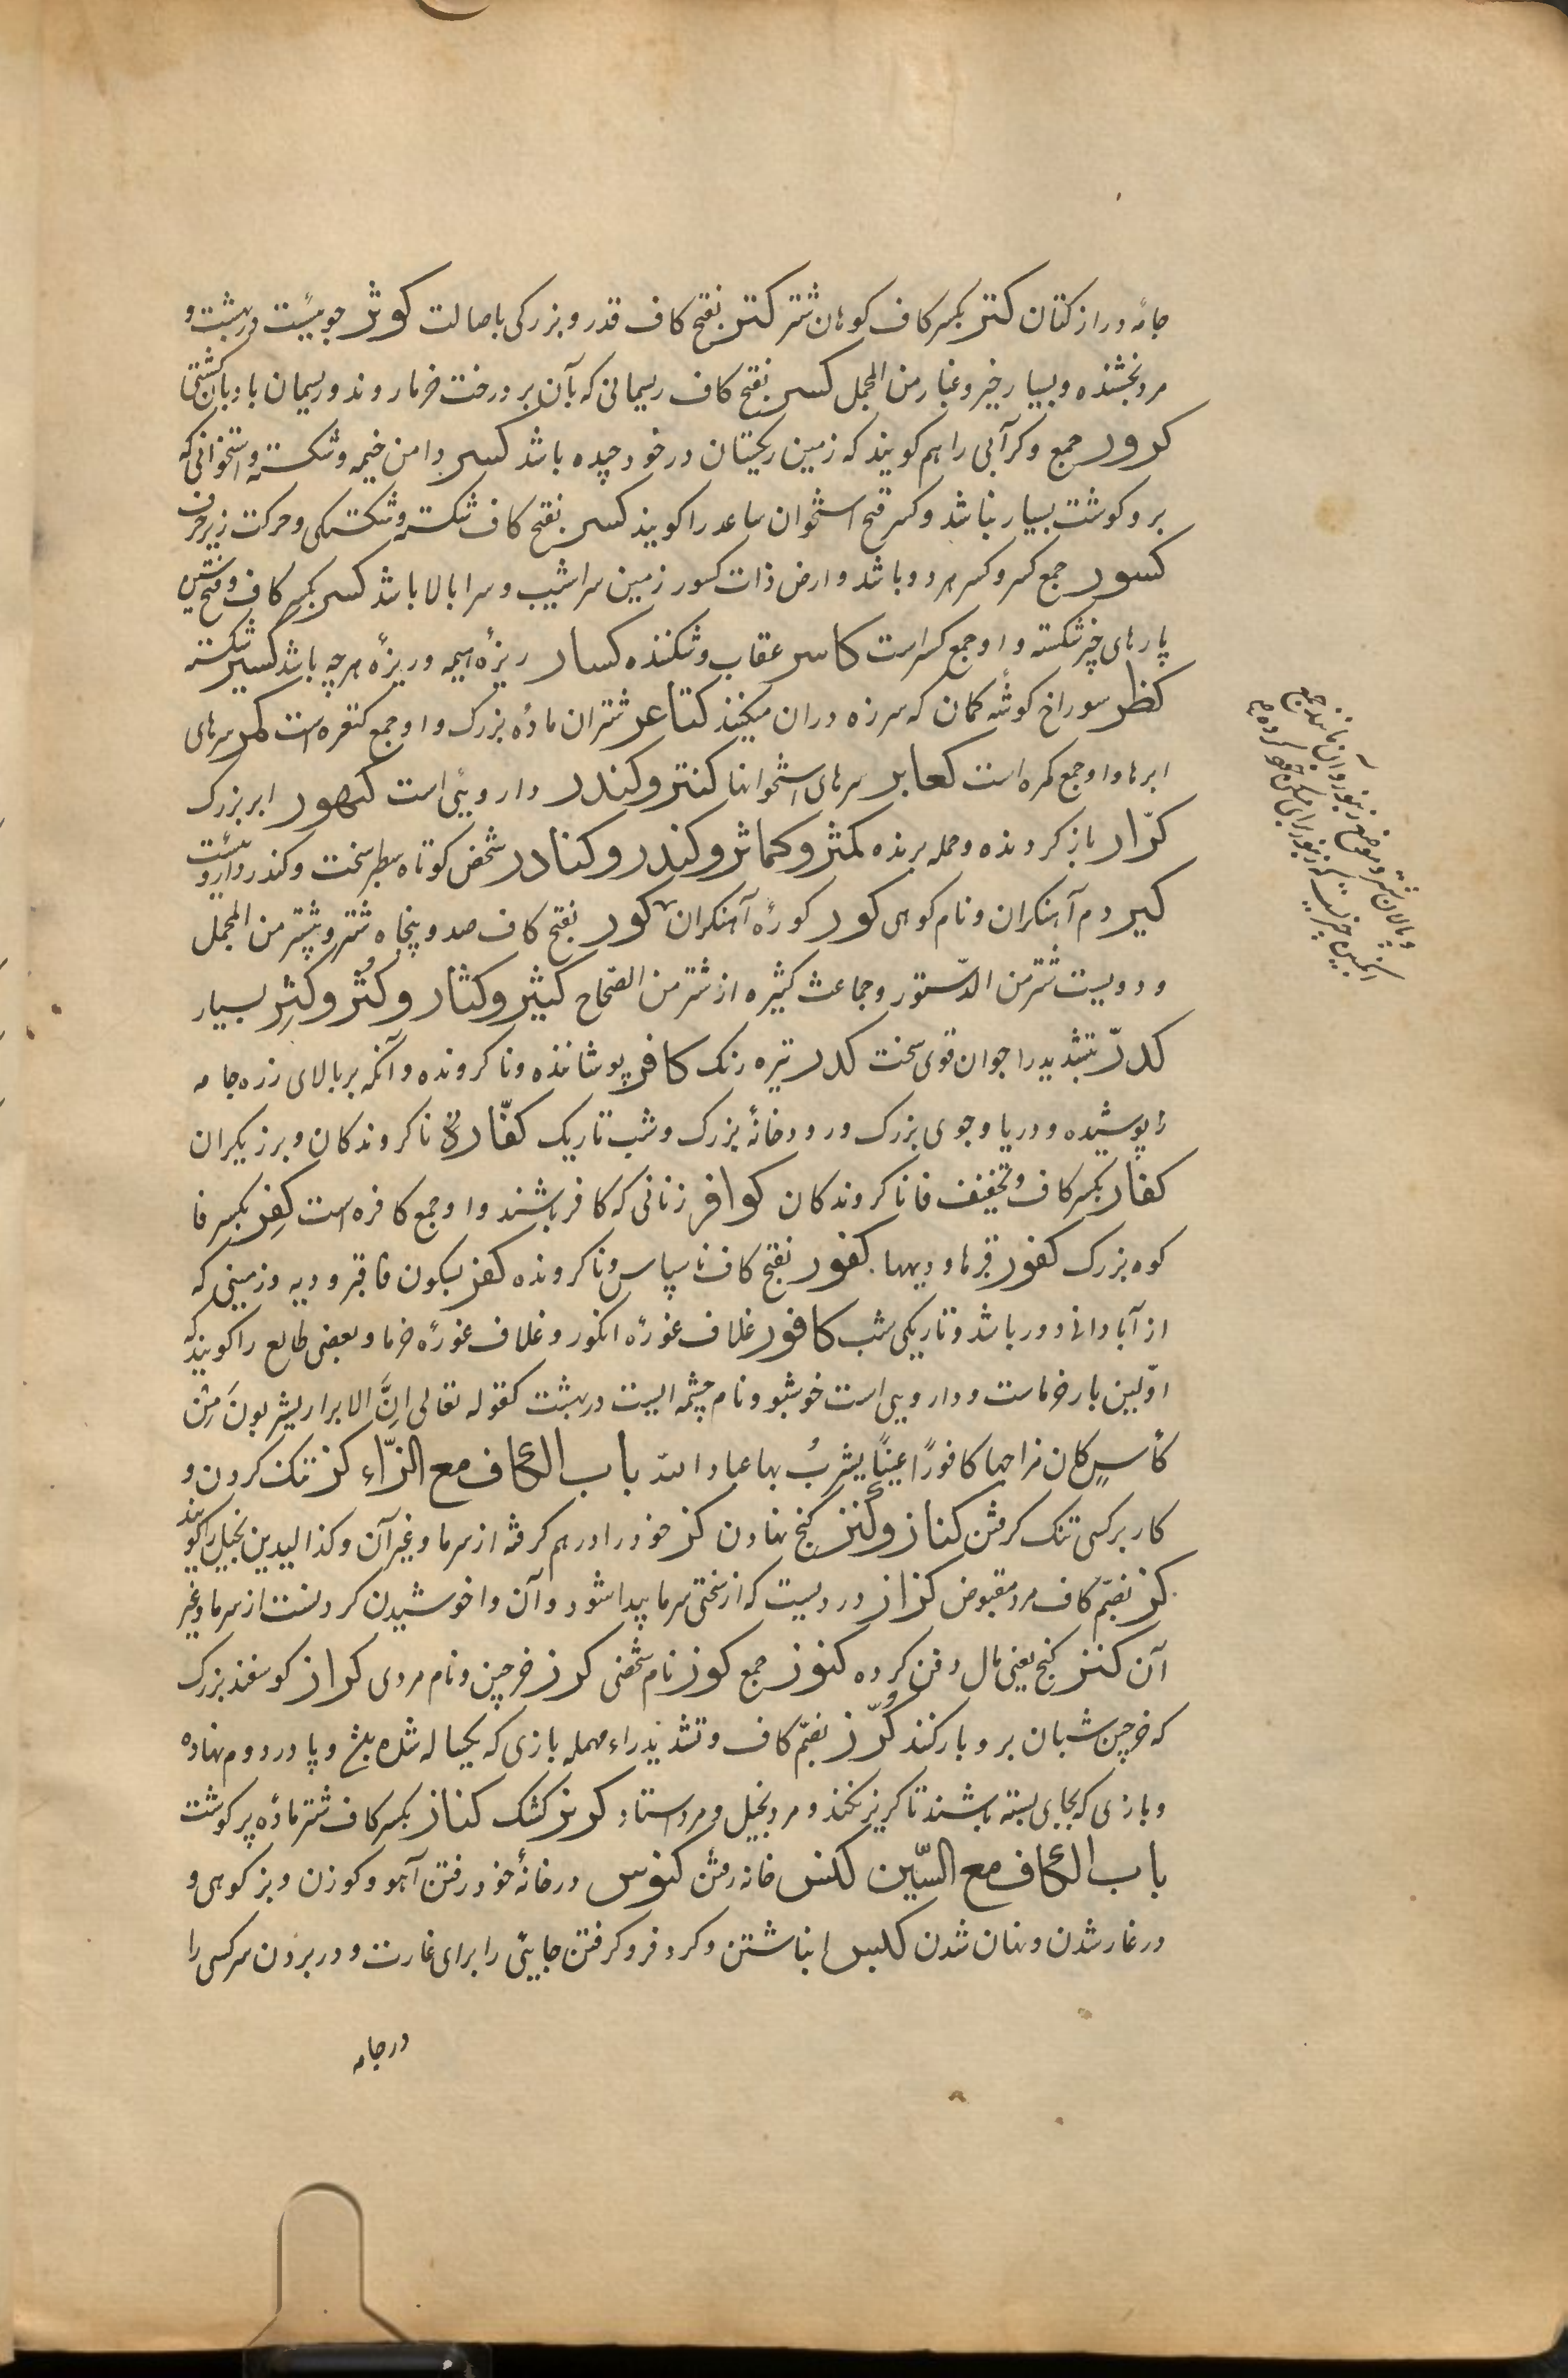 جامهٔ دراز کتان کتر بکسر کاف کوهان شتر کتر بفتح کاف قدر و بزرکی باصالت کوثر جوییست در بهشت و
مرد بخشنده و بسیار خیر و غبار من المجمل کسر بفتح کاف ریسمانی که بآن بر درخت خرما روند و ریسمان بادبان کشتی
کرور جمع و کر آبی را هم کویند که زمین ریکستان در خود چیده باشد کسر دامن خیمه و شکسته و استخوانی که
برو کوشت بسیار نباشد و کسر قبح استخوان ساعد را کویند کسر بفتح کاف شکسته و شکستکی و حرکت زیر حرف
کسور جمع کسر و کسر هر دو باشد و ارض ذات کسور زمین سراشیب و سرابالا باشد کسر بکسر کاف و فتح سین
پارهای چیز شکسته و او جمع کسره است کاسر عقاب و شکننده کسار ریزهٔ هیمه و ریزهٔ هر چه باشد کسیر شکسته
کظر سوراخ کوشهٔ کمان که سر زه دران میکنند کتاعر شتران مادهٔ بزرک و او جمع کنعره است کمر سرهای
ابرها و او جمع کمره است کعابر سرهای استخوانها کنتر و کندر دارویی است کنهور ابر بزرک
کرّار باز کردنده و حمله برنده کمثر و کماثر و کندر و کنادر شخص کوتاه سطبر سخت و کندر داروییست
کیر دم آهنکران و نام کوهی کور کورهٔ آهنکران کور بفتح کاف صد و پنجاه شتر و بیشتر من المجمل
و دویست شتر من الدّستور و جماعت کثیره از شتر من الصّحاح کثیر و کثار و کثر و کثِر بسیار
کدرّ بتشدید را جوان قوی سخت کدر تیره رنک کافر پوشاننده و ناکرونده و آنکه بر بالای زره جامه
پوشیده و دریا و جوی بزرک و رودخانهٔ بزرک و شب تاریک کفّار ناکروندکان و برزیکران
کفار بکسر کاف و تخفیف فا ناکروندکان کوافر زنانی که کافر باشند و او جمع کافره است کفِر بکسر فا
کوه بزرک کفور قبرها و دیهها کفور بفتح کاف ناسپاس و ناکرونده کفر بسکون فا قبر و دیه و زمینی که
از آبادانی دور باشد و تاریکی شب کافور غلاف غورهٔ انکور و غلاف غورهٔ خرما و بعضی طلع را کویند که
اوّلین بار خرماست و دارویی است خوشبو و نام چشمه ایست در بهشت کقوله تعالی انَّ الابرار یشربونَ مِن
کأسٍ کان مزاجها کافورًا عینًا یشربُ بها عباد الله باب الکاف مع الزّاء کز تنک کردن و
کار بر کسی تنک کرفتن کناز و کنز کنج نهادن کز خود را درهم کرفته از سرما و غیر آن و کذا الیدین بخیل را کویند
کز بضمّ کاف مرد مقبوض کزاز دردیست که از سختی سرما پیدا شود و آن واخوشیدن کردنست از سرما و غیر
آن کنز کنج یعنی مال دفن کرده کنوز جمع کوز نام شخصی کرز خرجین و نام مردی کراز کوسفند بزرک
که خرجین شبان برو بار کنند کُرّز بضمّ کاف و تشدید راء مهمله بازی که یکساله شده باشد و پا در دوم نهاده
و بازی که بجای بسته باشند تا کریز بکند و مرد بخیل و مرد استاد کریز کشک کناز بکسر کاف شتر مادهٔ پر کوشت
باب الکاف مع السّین کنس خانه رفتن کنوس در خانهٔ خود رفتن آهو و کوزن و بز کوهی و
در غار شدن و نهان شدن کبس انباشتن و کرد فرو کرفتن جایی را برای غارت و در بردن سر کسی را
در جامه
و پالان شتر و موضع زنبور و آن مانند جمع
انکبین چیزیست که زنبور برای مسکن خود کرده